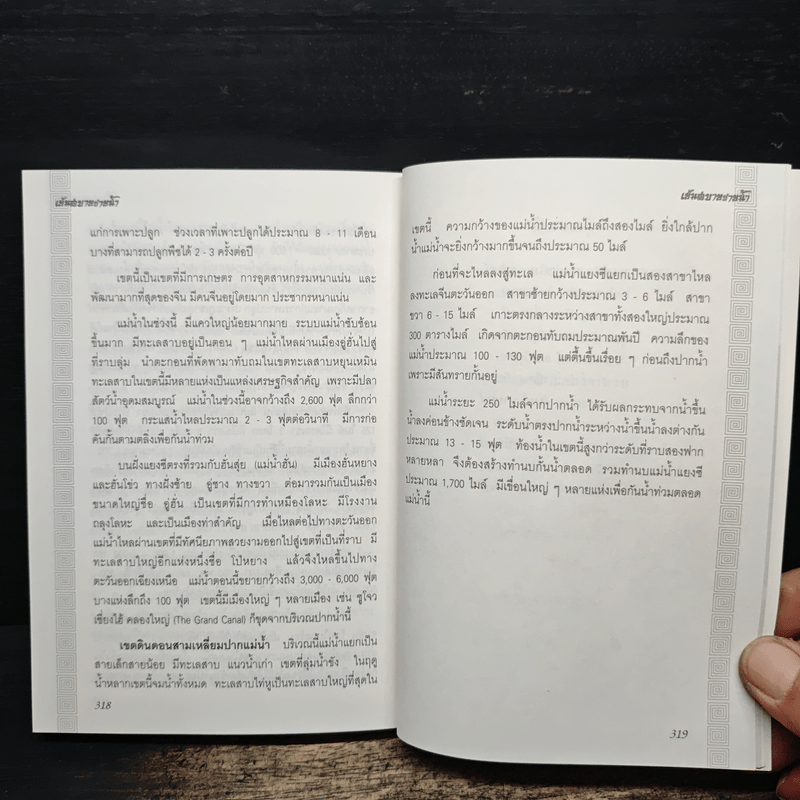 เดินสะบายชายหน้า
แก่การเพาะปลูก ช่วงเวลาที่เพาะปลูกได้ประมาณ 8 - 11 เดือน
บางที่สามารถปลูกพืชได้ 2 - 3 ครั้งต่อปี
เขตนี้เป็นเขตที่มีการเกษตร การอุตสาหกรรมหนาแน่น และ
พัฒนามากที่สุดของจีน มีคนจีนอยู่โดยมาก ประชากรหนาแน่น
แม่น้ำในช่วงนี้ มีแควใหญ่น้อยมากมาย ระบบแม่น้ำซับซ้อน
ขึ้นมาก มีทะเลสาบอยู่เป็นตอน ๆ แม่น้ำไหลผ่านเมืองอู่ฮั่นไปสู่
ที่ราบลุ่ม นำตะกอนที่พัดพามาทับถมในเขตทะเลสาบหยุนเหมิน
ทะเลสาบในเขตนี้มีหลายแห่งเป็นแหล่งเศรษฐกิจสำคัญ เพราะมีปลา
สัตว์น้ำอุดมสมบูรณ์ แม่น้ำในช่วงนี้อาจกว้างถึง 2,600 ฟุต ลึกกว่า
100 ฟุต กระแสน้ำไหลประมาณ 2 - 3 ฟุตต่อวินาที มีการก่อ
คันกั้นตามตลิ่งเพื่อกันน้ำท่วม
บนฝั่งแยงซีตรงที่รวมกับฮั่นสุ่ย (แม่น้ำฮั่น) มีเมืองฮั่นหยาง
และฮั่นโข่ว ทางฝั่งซ้าย อู่ชาง ทางขวา ต่อมารวมกันเป็นเมือง
ขนาดใหญ่ชื่อ อู่ฮั่น เป็นเขตที่มีการทำเหมืองโลหะ มีโรงงาน
ถลุงโลหะ และเป็นเมืองท่าสำคัญ เมื่อไหลต่อไปทางตะวันออก
แม่น้ำไหลผ่านเขตที่มีทัศนียภาพสวยงามออกไปสู่เขตที่เป็นที่ราบ มี
ทะเลสาบใหญ่อีกแห่งหนึ่งชื่อ โป๋หยาง แล้วจึงไหลขึ้นไปทาง
ตะวันออกเฉียงเหนือ แม่น้ำตอนนี้ขยายกว้างถึง 3,000 - 6,000 ฟุต
บางแห่งลึกถึง 100 ฟุต เขตนี้มีเมืองใหญ่ ๆ หลายเมือง เช่น ซูโจว
เซี่ยงไฮ้ คลองใหญ่ (The Grand Canal) ก็ขุดจากบริเวณปากน้ำนี้
เขตดินดอนสามเหลี่ยมปากแม่น้ำ บริเวณนี้แม่น้ำแยกเป็น
สายเล็กสายน้อย มีทะเลสาบ แนวน้ำเก่า เขตที่ลุ่มน้ำขัง ในฤดู
น้ำหลากเขตนี้จมน้ำทั้งหมด ทะเลสาบไท่หูเป็นทะเลสาบใหญ่ที่สุดใน
318
เขตนี้ ความกว้างของแม่น้ำประมาณไมล์ถึงสองไมล์ ยิ่งใกล้ปาก
น้ำแม่น้ำจะยิ่งกว้างมากขึ้นจนถึงประมาณ 50 ไมล์
ก่อนที่จะไหลลงสู่ทะเล แม่น้ำแยงซีแยกเป็นสองสาขาไหล
ลงทะเลจีนตะวันออก สาขาซ้ายกว้างประมาณ 3 - 6 ไมล์ สาขา
ขวา 6 - 15 ไมล์ เกาะตรงกลางระหว่างสาขาทั้งสองใหญ่ประมาณ
300 ตารางไมล์ เกิดจากตะกอนทับถมประมาณพันปี ความลึกของ
แม่น้ำประมาณ 100 - 130 ฟุต แต่ตื้นขึ้นเรื่อย ๆ ก่อนถึงปากน้ำ
เพราะมีสันทรายกั้นอยู่
แม่น้ำระยะ 250 ไมล์จากปากน้ำ ได้รับผลกระทบจากน้ำขึ้น
น้ำลงค่อนข้างชัดเจน ระดับน้ำตรงปากน้ำระหว่างน้ำขึ้นน้ำลงต่างกัน
ประมาณ 13 - 15 ฟุต ท้องน้ำในเขตนี้สูงกว่าระดับที่ราบสองฟาก
หลายหลา จึงต้องสร้างทำนบกั้นน้ำตลอด รวมทำนบแม่น้ำแยงซี
ประมาณ 1,700 ไมล์ มีเขื่อนใหญ่ ๆ หลายแห่งเพื่อกันน้ำท่วมตลอด
แม่น้ำนี้
319